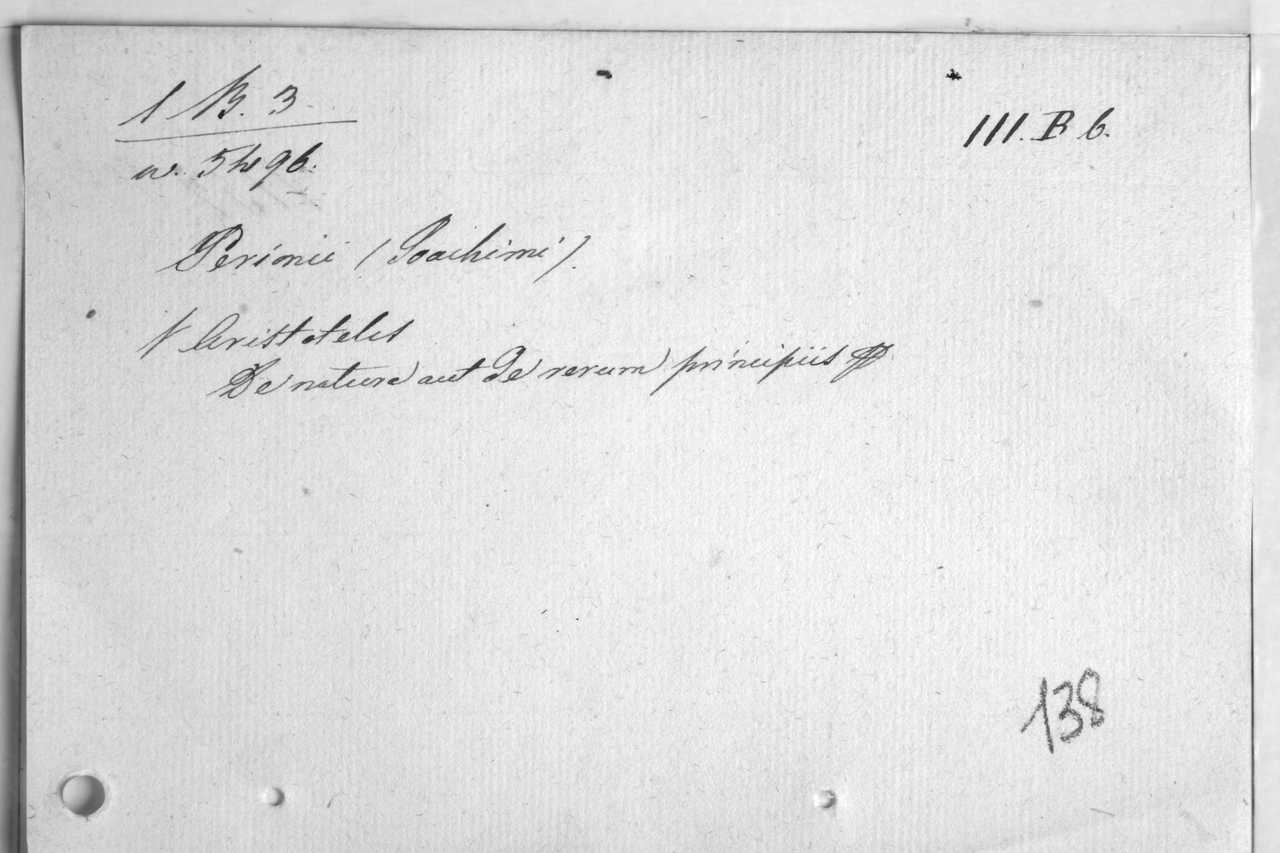 1 B. 3
III. B 6.
Perionii (Joachimi).
v Aristoteles
De natura aut de rerum principiis
138